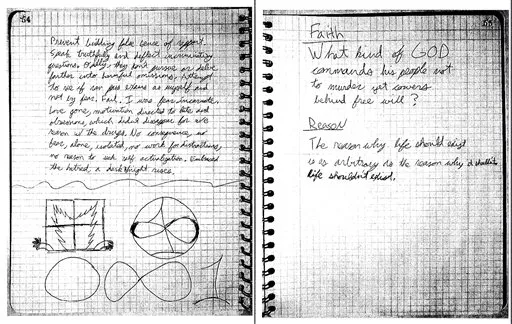 54
Prevent building false sense of rapport.
Speak truthfully and deflect incriminating
questions. Oddly, they don't pursue or delve
further into harmful omissions. Attempt
to see if son pas wrans as myself and
not by pass. Fail. I was fear incarnate.
Love gone, motivation directed to hate and
, which didn't disappear for no
reason at the drugs. No consequence, no
fear, alone, isolated, no work for distractions,
no reason to seek self actualization. Embraced
the hatred, a dark knight rises.
Faith
What kind of GOD
commands his people not
to murder yet cowers
behind free will?
Reason
The reason why life should exist
is as arbitrary as the reason why it shouldn't
life shouldn't exist.